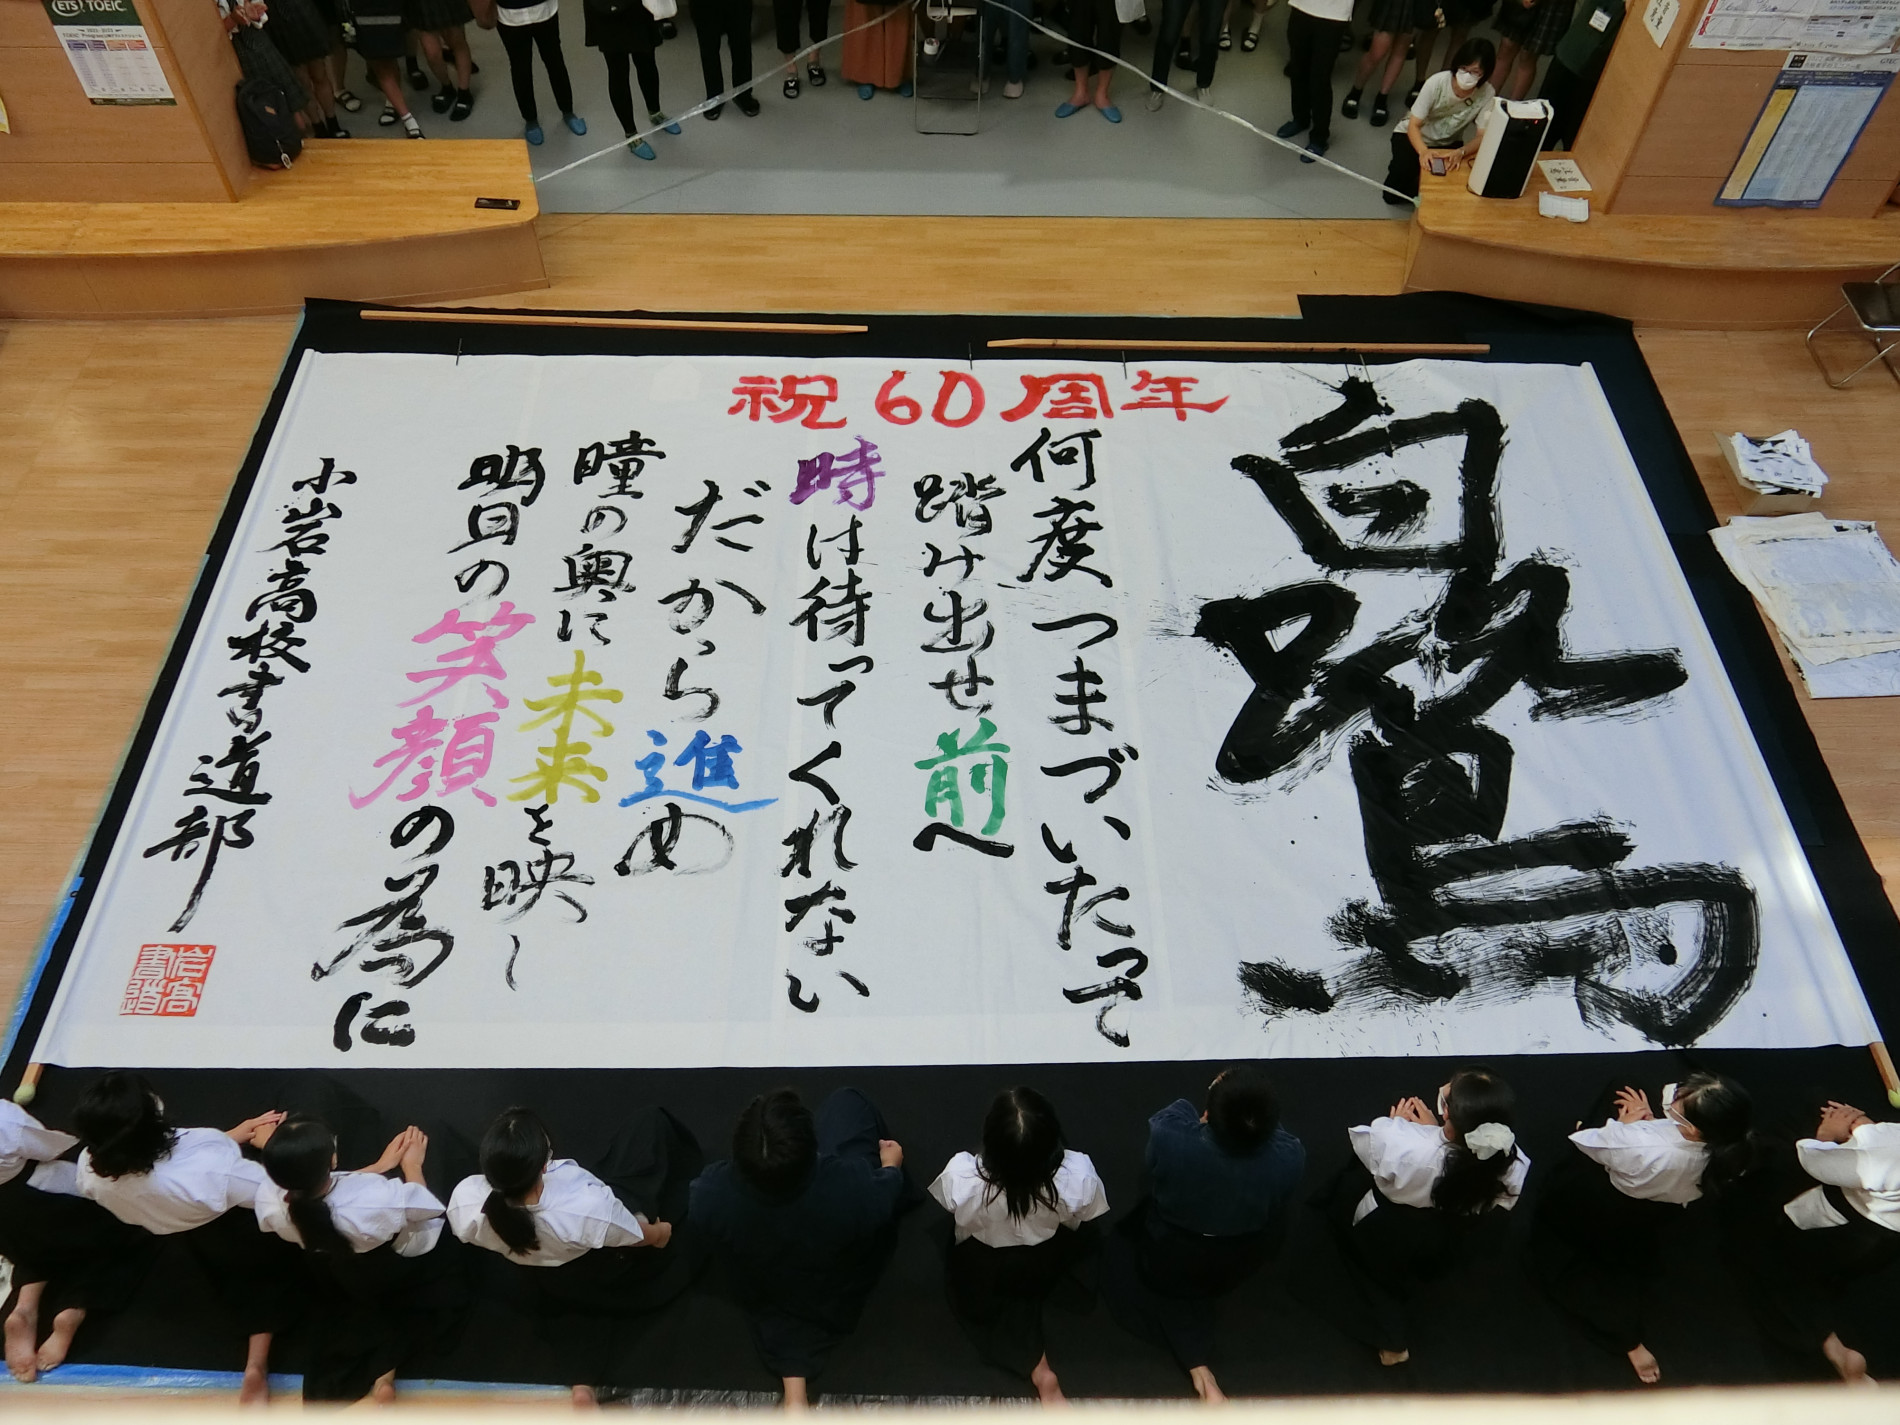 ETS TOEIC
祝60周年
白鷺
何度つまづいたって
踏み出せ前へ
時は待ってくれない
だから進め
瞳の奥に未来を映し
明日の笑顔の為に
小岩高校書道部